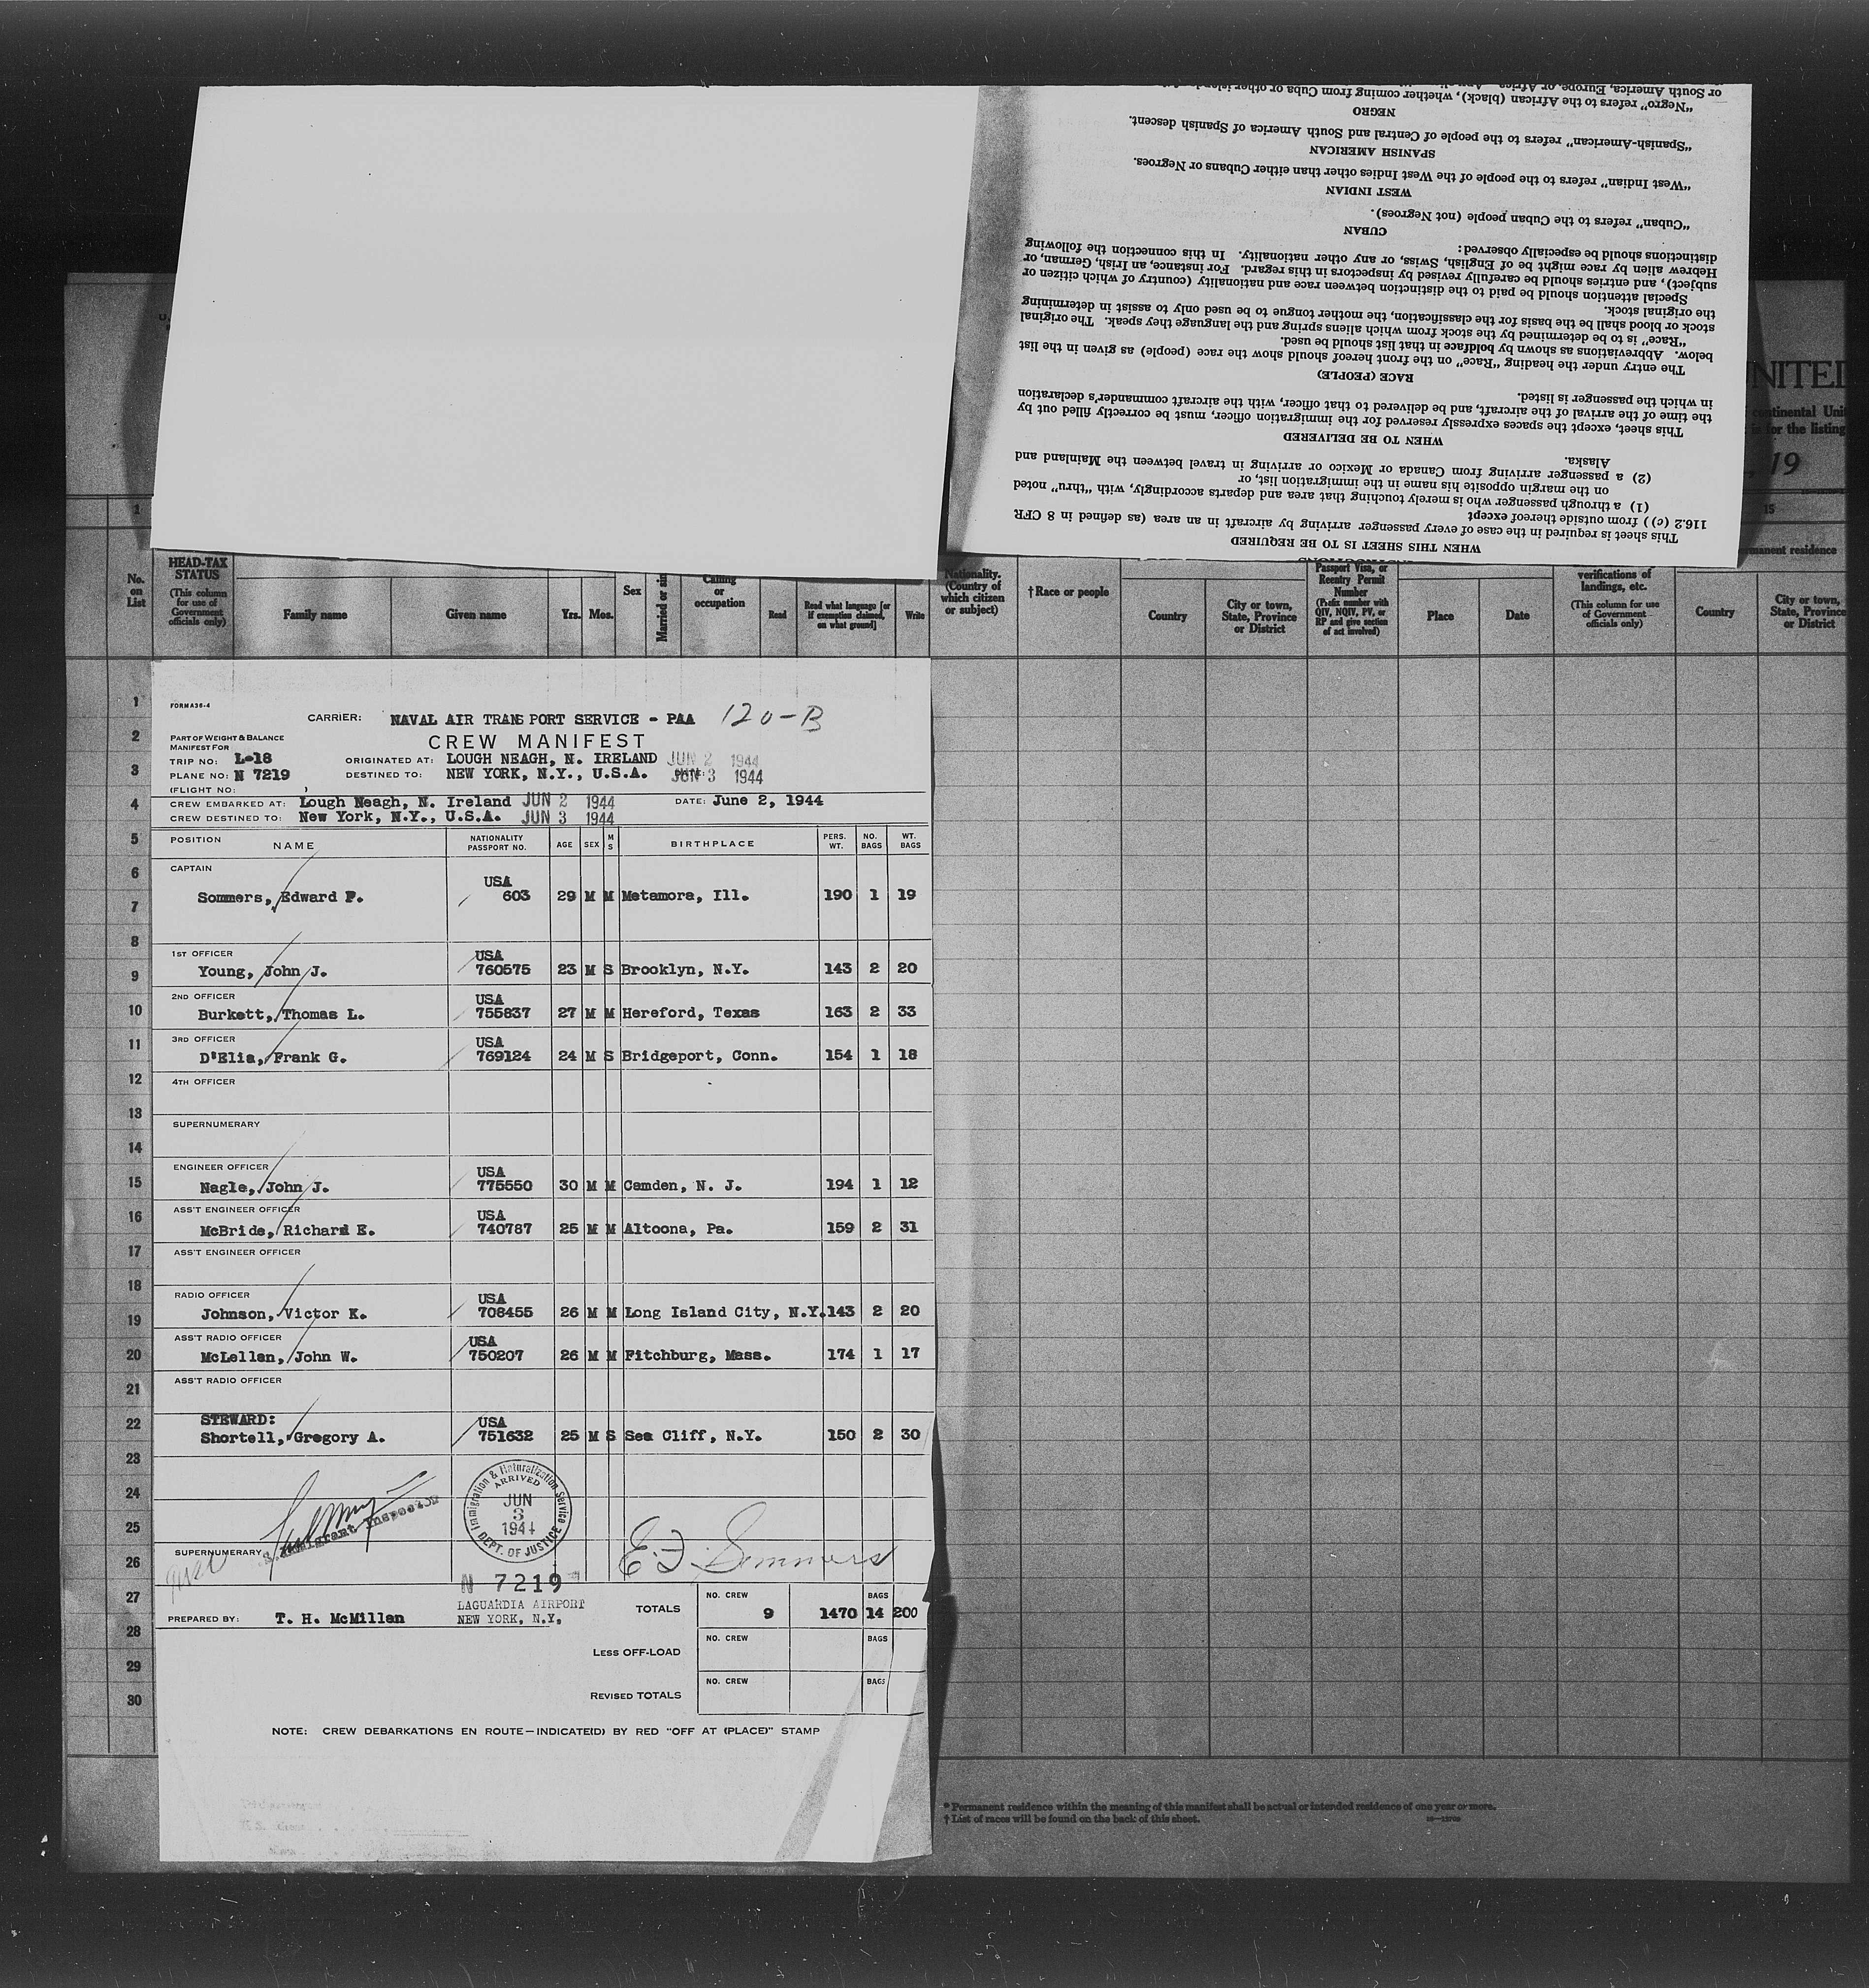 or South America, Europe, or Africa.
"Negro" refers to the African (black), whether coming from Cuba or other
NEGRO
"Spanish-American" refers to the people of Central and South America of Spanish descent.
SPANISH AMERICAN
"West Indian" refers to the people of the West Indies other than either Cubans or Negroes.
WEST INDIAN
"Cuban" refers to the Cuban people (not Negroes).
CUBAN
distinctions should be especially observed:
Hebrew alien by race might be of English, Swiss, or any other nationality. In this connection the following
subject), and entries should be carefully revised by inspectors in this regard. For instance, an Irish, German, or
Special attention should be paid to the distinction between race and nationality (country of which citizen or
the original stock.
stock or blood shall be the basis for the classification, the mother tongue to be used only to assist in determining
"Race" is to be determined by the stock from which aliens spring and the language they speak. The original
below. Abbreviations as shown by boldface in that list should be used.
The entry under the heading "Race" on the front hereof should show the race (people) as given in the list
RACE (PEOPLE)
in which the passenger is listed.
the time of the arrival of the aircraft, and be delivered to that officer, with the aircraft commander's declaration
This sheet, except the spaces expressly reserved for the immigration officer, must be correctly filled out by
WHEN TO BE DELIVERED
Alaska.
(2) a passenger arriving from Canada or Mexico or arriving in travel between the Mainland and
on the margin opposite his name in the immigration list, or
(1) a through passenger who is merely touching that area and departs accordingly, with "thru" noted
116.2 (c)) from outside thereof except
This sheet is required in the case of every passenger arriving by aircraft in an area (as defined in 8 CFR
WHEN THIS SHEET IS TO BE REQUIRED
NITED
continental Unit
is for the listing
19
1
15
manent residence
No. on List
HEAD-TAX STATUS
(This column for use of Government officials only)
Family name
Given name
Yrs.
Mos.
Sex
Married or sin
Calling or occupation
Read
Read what language [or if exemption claimed, on what ground]
Write
Nationality. (Country of which citizen or subject)
†Race or people
Country
City or town, State, Province or District
Passport Visa, or Reentry Permit Number
(Prefix number with QIV, NQIV, PV, or RP and give section of act involved)
Place
Date
verifications of landings, etc.
(This column for use of Government officials only)
Country
City or town, State, Province or District
1
2
3
4
5
6
7
8
9
10
11
12
13
14
15
16
17
18
19
20
21
22
23
24
25
26
27
28
29
30
FORM A36-4
CARRIER: NAVAL AIR TRANSPORT SERVICE - PAA 120-B
PART OF WEIGHT & BALANCE
MANIFEST FOR
CREW MANIFEST
TRIP NO: L-18
ORIGINATED AT: LOUGH NEAGH, N. IRELAND JUN 2 1944
PLANE NO: N 7219
DESTINED TO: NEW YORK, N.Y., U.S.A. JUN 3 1944
(FLIGHT NO: )
CREW EMBARKED AT: Lough Neagh, N. Ireland JUN 2 1944 DATE: June 2, 1944
CREW DESTINED TO: New York, N.Y., U.S.A. JUN 3 1944
POSITION NAME NATIONALITY PASSPORT NO. AGE SEX M S BIRTHPLACE PERS. WT. NO. BAGS WT. BAGS
CAPTAIN
USA
Sommers, Edward F. 603 29 M M Metamora, Ill. 190 1 19
1ST OFFICER
USA
Young, John J. 760575 23 M S Brooklyn, N.Y. 143 2 20
2ND OFFICER
USA
Burkett, Thomas L. 755837 27 M M Hereford, Texas 163 2 33
3RD OFFICER
USA
D'Elia, Frank G. 769124 24 M S Bridgeport, Conn. 154 1 18
4TH OFFICER
SUPERNUMERARY
ENGINEER OFFICER
USA
Nagle, John J. 775550 30 M M Camden, N. J. 194 1 12
ASS'T ENGINEER OFFICER
USA
McBride, Richard E. 740787 25 M M Altoona, Pa. 159 2 31
ASS'T ENGINEER OFFICER
RADIO OFFICER
USA
Johnson, Victor K. 708455 26 M M Long Island City, N.Y. 143 2 20
ASS'T RADIO OFFICER
USA
McLellan, John W. 750207 26 M M Fitchburg, Mass. 174 1 17
ASS'T RADIO OFFICER
STEWARD:
USA
Shortell, Gregory A. 751632 25 M S Sea Cliff, N.Y. 150 2 30
Immigration & Naturalization Service
ARRIVED
JUN
3
1944
DEPT. OF JUSTICE
Immigrant Inspector
SUPERNUMERARY
E. F. Sommers
N 7219
LAGUARDIA AIRPORT
NEW YORK, N.Y.
PREPARED BY: T. H. McMillen
TOTALS NO. CREW 9 1470 BAGS 14 200
LESS OFF-LOAD NO. CREW BAGS
REVISED TOTALS NO. CREW BAGS
NOTE: CREW DEBARKATIONS EN ROUTE—INDICATE(D) BY RED "OFF AT (PLACE)" STAMP
* Permanent residence within the meaning of this manifest shall be actual or intended residence of one year or more.
† List of races will be found on the back of this sheet.